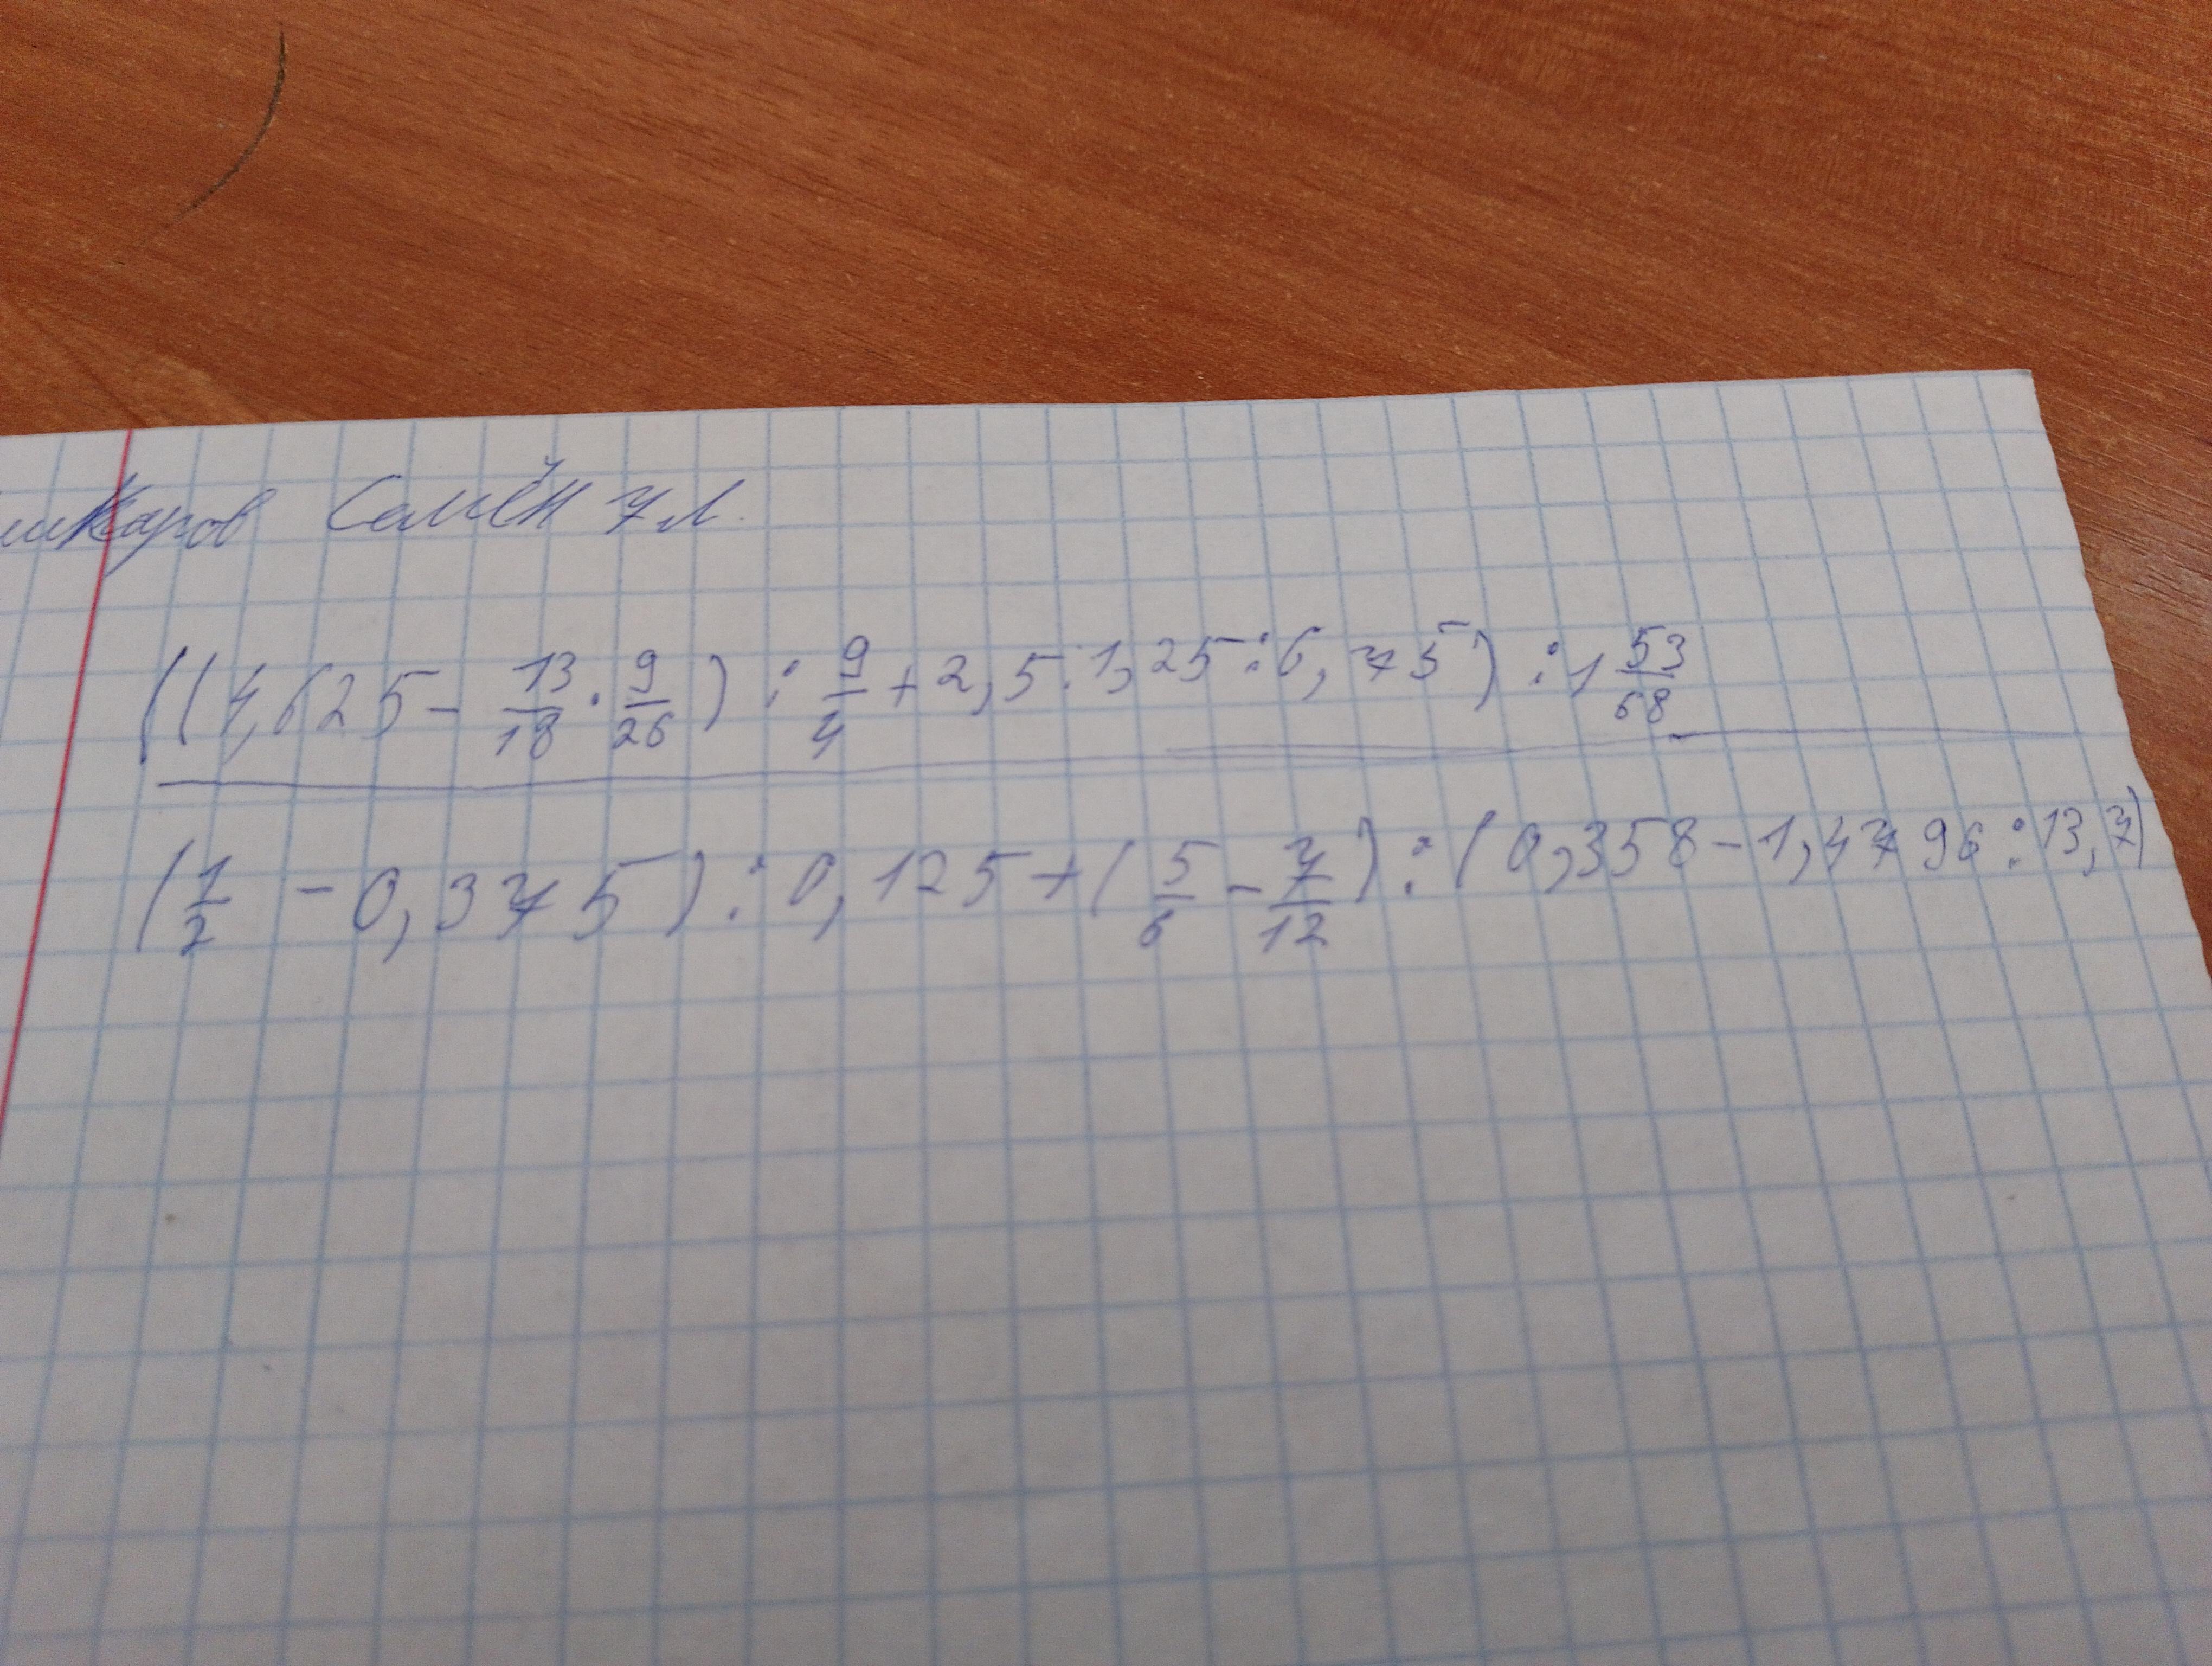 Семён 7л.
((4,625 - 13/18 · 9/26) : 9/4 + 2,5 : 1,25 : 6,75) : 1 53/68
(1/2 - 0,375) : 0,125 + (5/6 - 7/12) : (0,358 - 1,4796 : 13,7)